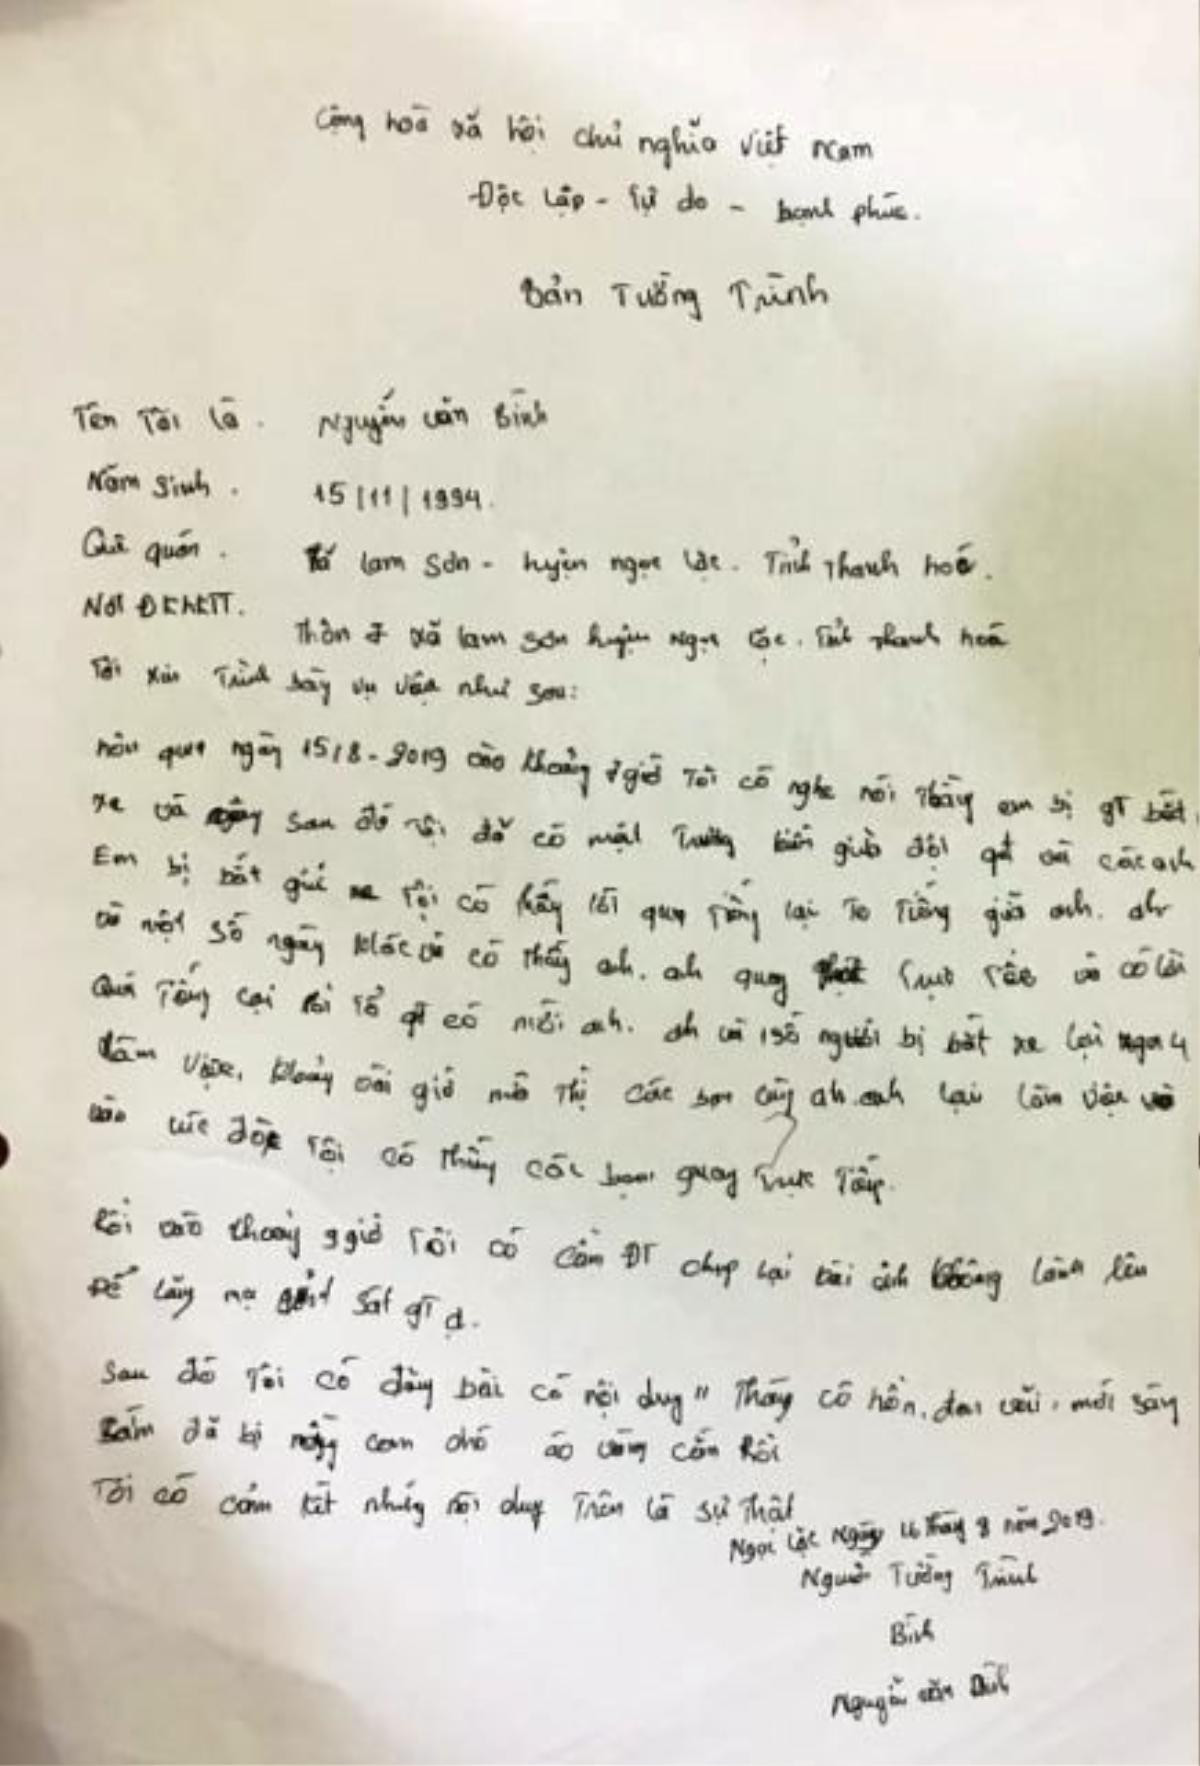 Cộng hoà xã hội chủ nghĩa Việt Nam
Độc lập - Tự do - hạnh phúc.
Bản Tường Trình
Tên Tôi là. Nguyễn Văn Bình
Năm sinh. 15/11/1994.
Quê quán. lam sơn - huyện ngọc lặc. Tỉnh Thanh hoá.
Nơi ĐKhKTT.
Thôn 7 xã lam sơn huyện Ngọc lặc. Tỉnh Thanh hoá
Tôi xin Trình bày vụ việc như sau:
hôm qua ngày 15/8-2019 vào khoảng 7 giờ Tôi có nghe nói Thằng em bị gT bắt
xe và ngay sau đó tôi đã có mặt giữa đội gt và các anh
Em bị bắt giữ xe Tôi có thấy lời qua Tiếng lại To Tiếng giữa anh. anh
và một số người khác và có thấy anh. anh quay Trực Tiếp và có lời
Qua Tiếng lại rồi Tổ gT có mời anh. anh và 1 số người bị bắt xe lại
làm việc, khoảng vài giờ các bạn cùng anh. anh lại làm việc và
vào lúc đó Tôi có thấy các bạn quay Trực Tiếp.
Rồi vào khoảng 9 giờ Tôi có cầm ĐT chụp lại bài ảnh không lành lên
Để lăng mạ gT ạ.
Sau đó Tôi có đăng bài có nội dung " Tháng cô hồn. đen vãi. mới sáng
sớm đã bị mấy con chó áo vàng cắn Rồi
Tôi có cám kết những nội dung Trên là sự Thật
Ngọc lặc Ngày 16 Tháng 8 năm 2019.
Người Tường Trình
Bình
Nguyễn văn Bình